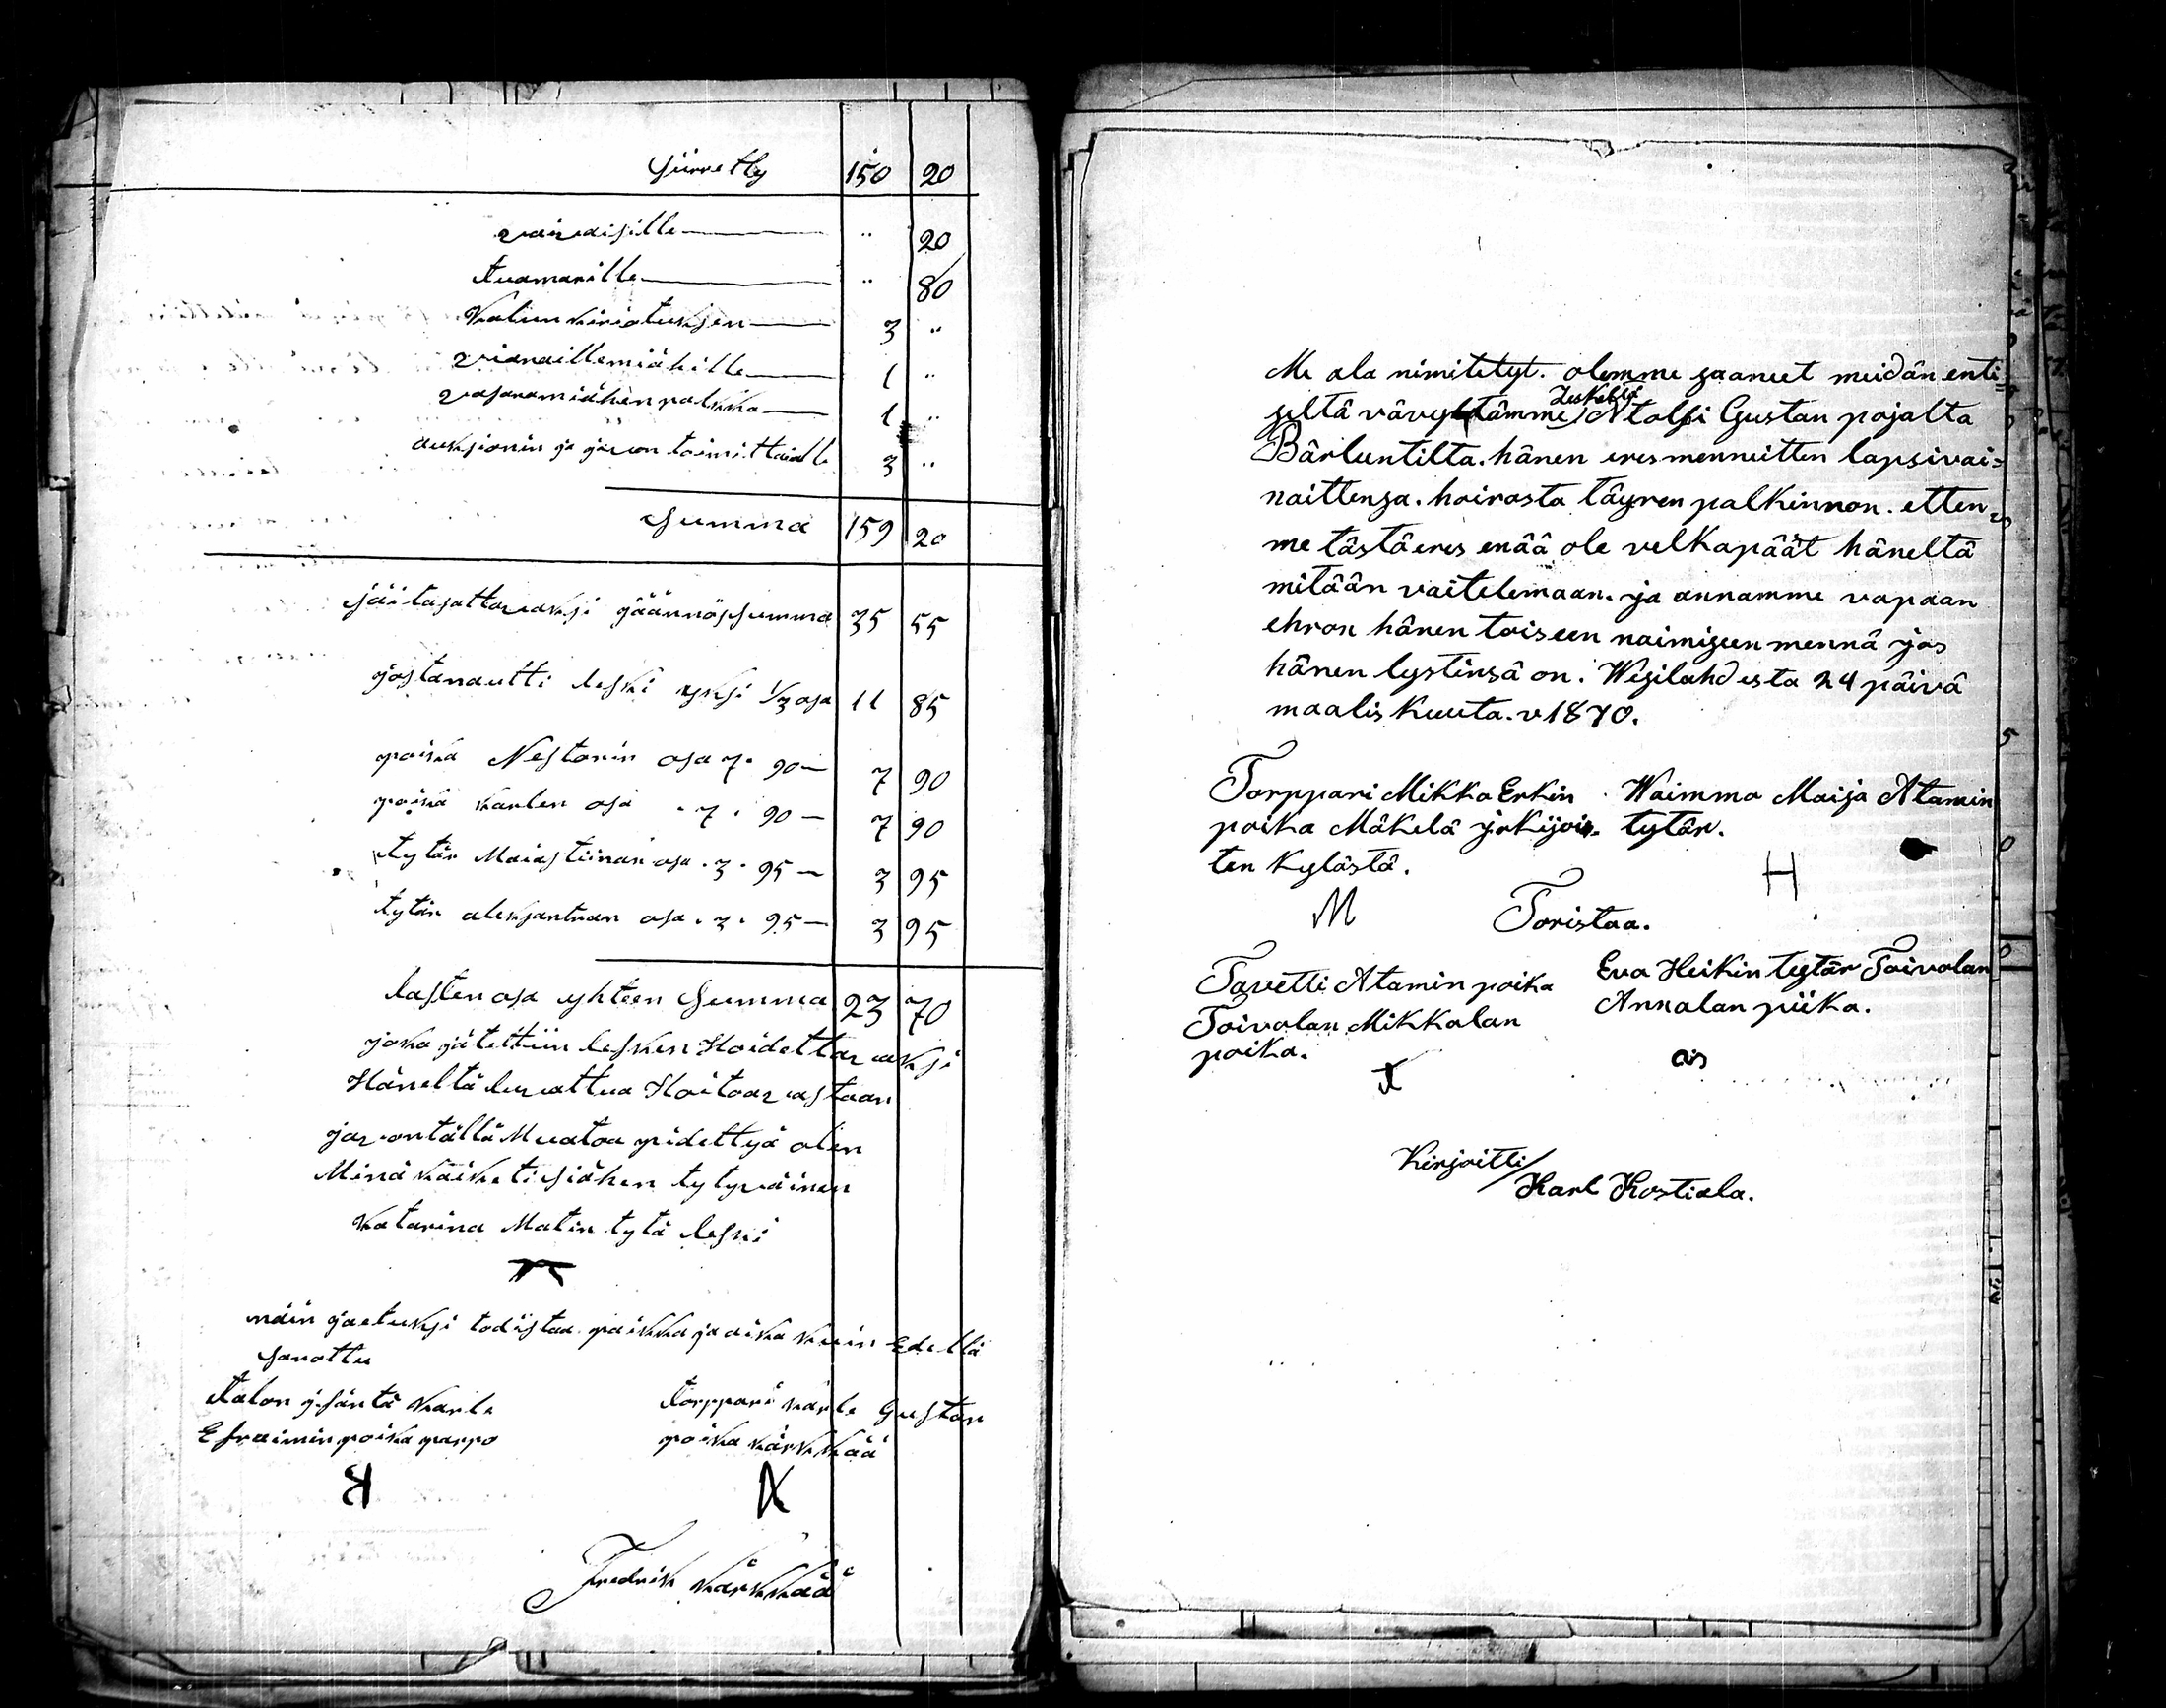 siirretty 150 20
vaivaisille — .. 20
tuamarille — .. 80
Kalun kiriotuksen — 3 ..
vianaillemiähille — 1 ..
vasaramiähen palkka — 1 ..
auksionin ja javon toimittaialle 3 ..
Summa 159 20
jäi tasattavaksi jäännössumma 35 55
jostanautti leski yksi 1/3 osa 11 85
poika Nestorin osa 7. 90 — 7 90
poika karlen osa . 7 . 90 — 7 90
tytän Maiastiinan osa . 3 . 95 — 3 95
tytän aleksantran osa . 3 . 95 — 3 95
lasten osa yhteen Summa 23 70
joka jätettiin lesken Hoidettavaksi
Häneltä luvattua Hoitoa vastaan
jaz on tällä Muatoa pidettyä olen
Minä kaiketi siähen tytyväinen
Katarina Matin tytä leski
näin jaetuksi todistaa paikka ja aika kuin Edellä
sanottu
talon isäntä Karle
Efraimin poika parpo
torppari karle Gustan
poika kärkkää
K
K
Fredrik kärkkää
Me ala nimitetyt. olemme saaneet meidän enti=
seltä vävyltämme Leskeltä Atolfi Gustan pojalta
Bärluntilta. hänen eresmenneitten lapsivai=
naittensa. hoirosta täyren palkinnon. etten=
me tästäeres enää ole velkapäät häneltä
mitään vaitelemaan. ja annamme vapaan
ehron hänen toiseen naimiseen mennä jos
hänen lystinsä on. Wesilahdesta 24 päivä
maaliskuuta. v 1870.
Torppari Mikko Erkin
poika Mäkelä jokijoin=
ten kylästä.
M
Waimma Maija Atamin
tytär.
H
Toristaa.
Tavetti Atamin poika
Toivolan Mikkolan
poika.
T
Eva Heikin tytär Toivolan
Annalan piika.
as
Kirjoitti/
Karl Kostiala.